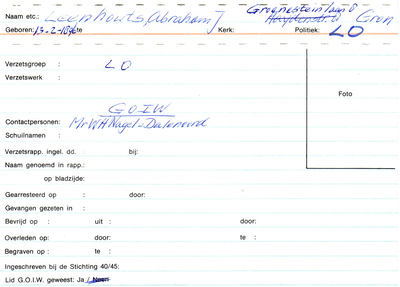 Naam etc.: Leephouts, Abraham J Groenesteinlaan 0 Gron
Geboren: 13-2- te Kerk: Politiek: LO
Verzetsgroep : LO
Verzetswerk :
Foto
GOIW
Contactpersonen: Mr WH Nagel -
Schuilnamen :
Verzetsrapp. ingel. dd. bij:
Naam genoemd in rapp.:
op bladzijde:
Gearresteerd op : door:
Gevangen gezeten in :
Bevrijd op : uit : door:
Overleden op: door: te :
Begraven op : te :
Ingeschreven bij de Stichting 40/45:
Lid G.O.I.W. geweest: Ja / Neen